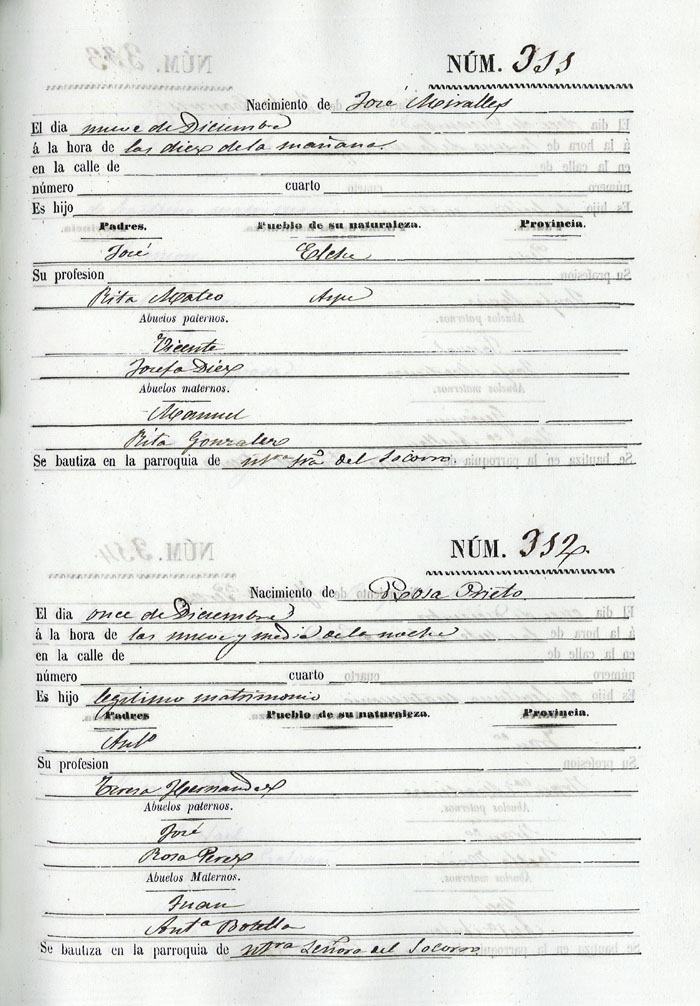 NÚM. 311
Nacimiento de José Miralles
El dia nueve de Diciembre
á la hora de las diez de la mañana.
en la calle de
número cuarto
Es hijo
Padres. Pueblo de su naturaleza. Provincia.
José Elche
Su profesion
Rita Mateo Aspe
Abuelos paternos.
Vicente
Josefa Diez
Abuelos maternos.
Manuel
Rita Gonzalez
Se bautiza en la parroquia de Ntra Sra del Socorro.
NÚM. 312.
Nacimiento de Rosa Prieto
El dia once de Diciembre
á la hora de las nueve y media de la noche
en la calle de
número cuarto
Es hijo legitimo matrimonio
Padres Pueblo de su naturaleza. Provincia.
Anto
Su profesion
Teresa Hernandez
Abuelos paternos.
José
Rosa Perez
Abuelos Maternos.
Juan
Anta Botella
Se bautiza en la parroquia de Ntra Señora del Socorro